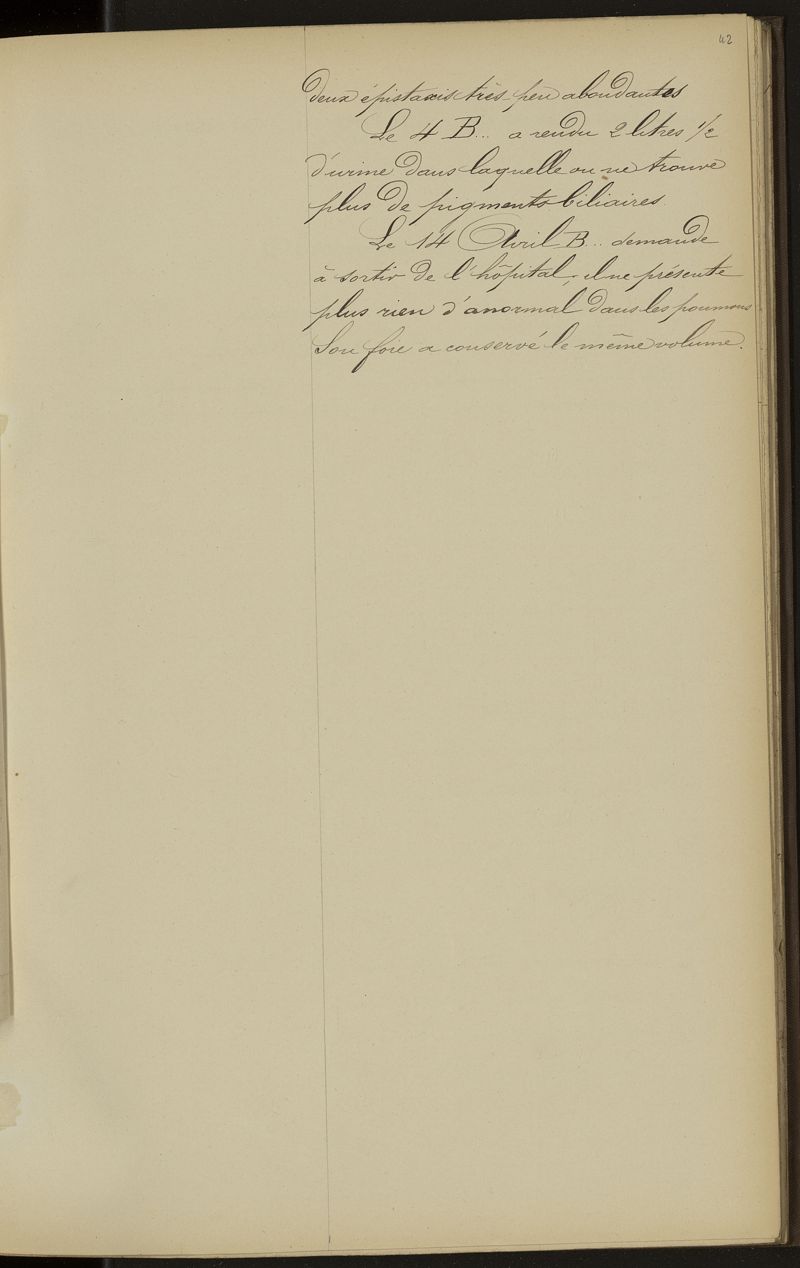 42
deux épistaxis très peu abondantes
Le 4 B... a rendu 2 litres 1/2
d'urine dans laquelle on ne trouve
plus de pigments biliaires.
Le 14 Avril B... demande
à sortir de l'hôpital, il ne présente
plus rien d'anormal dans les poumons
Son foie a conservé le même volume.